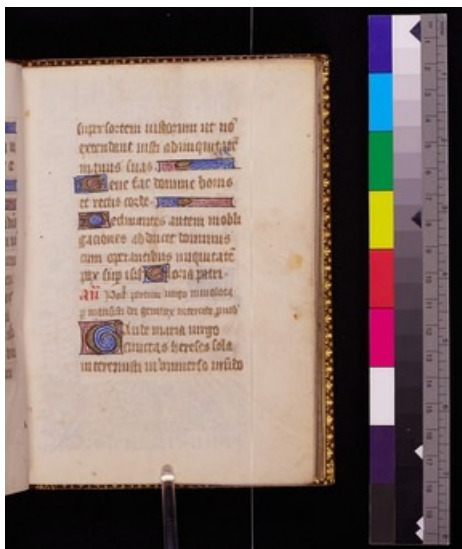 super sortem iustorum ut nō
extendant iusti ad iniquitatē
manus suas
Bene fac domine bonis
et rectis corde
Declinantes autem in obli
gaciones adducet dominus
cum operantibus iniquitatē
pax sup isrl Gloria patri
añ Post partum virgo inviolata
p mansisti dei genitrix intercede p nob
Gaude maria virgo
cunctas hereses sola
interemisti in universo mūdo